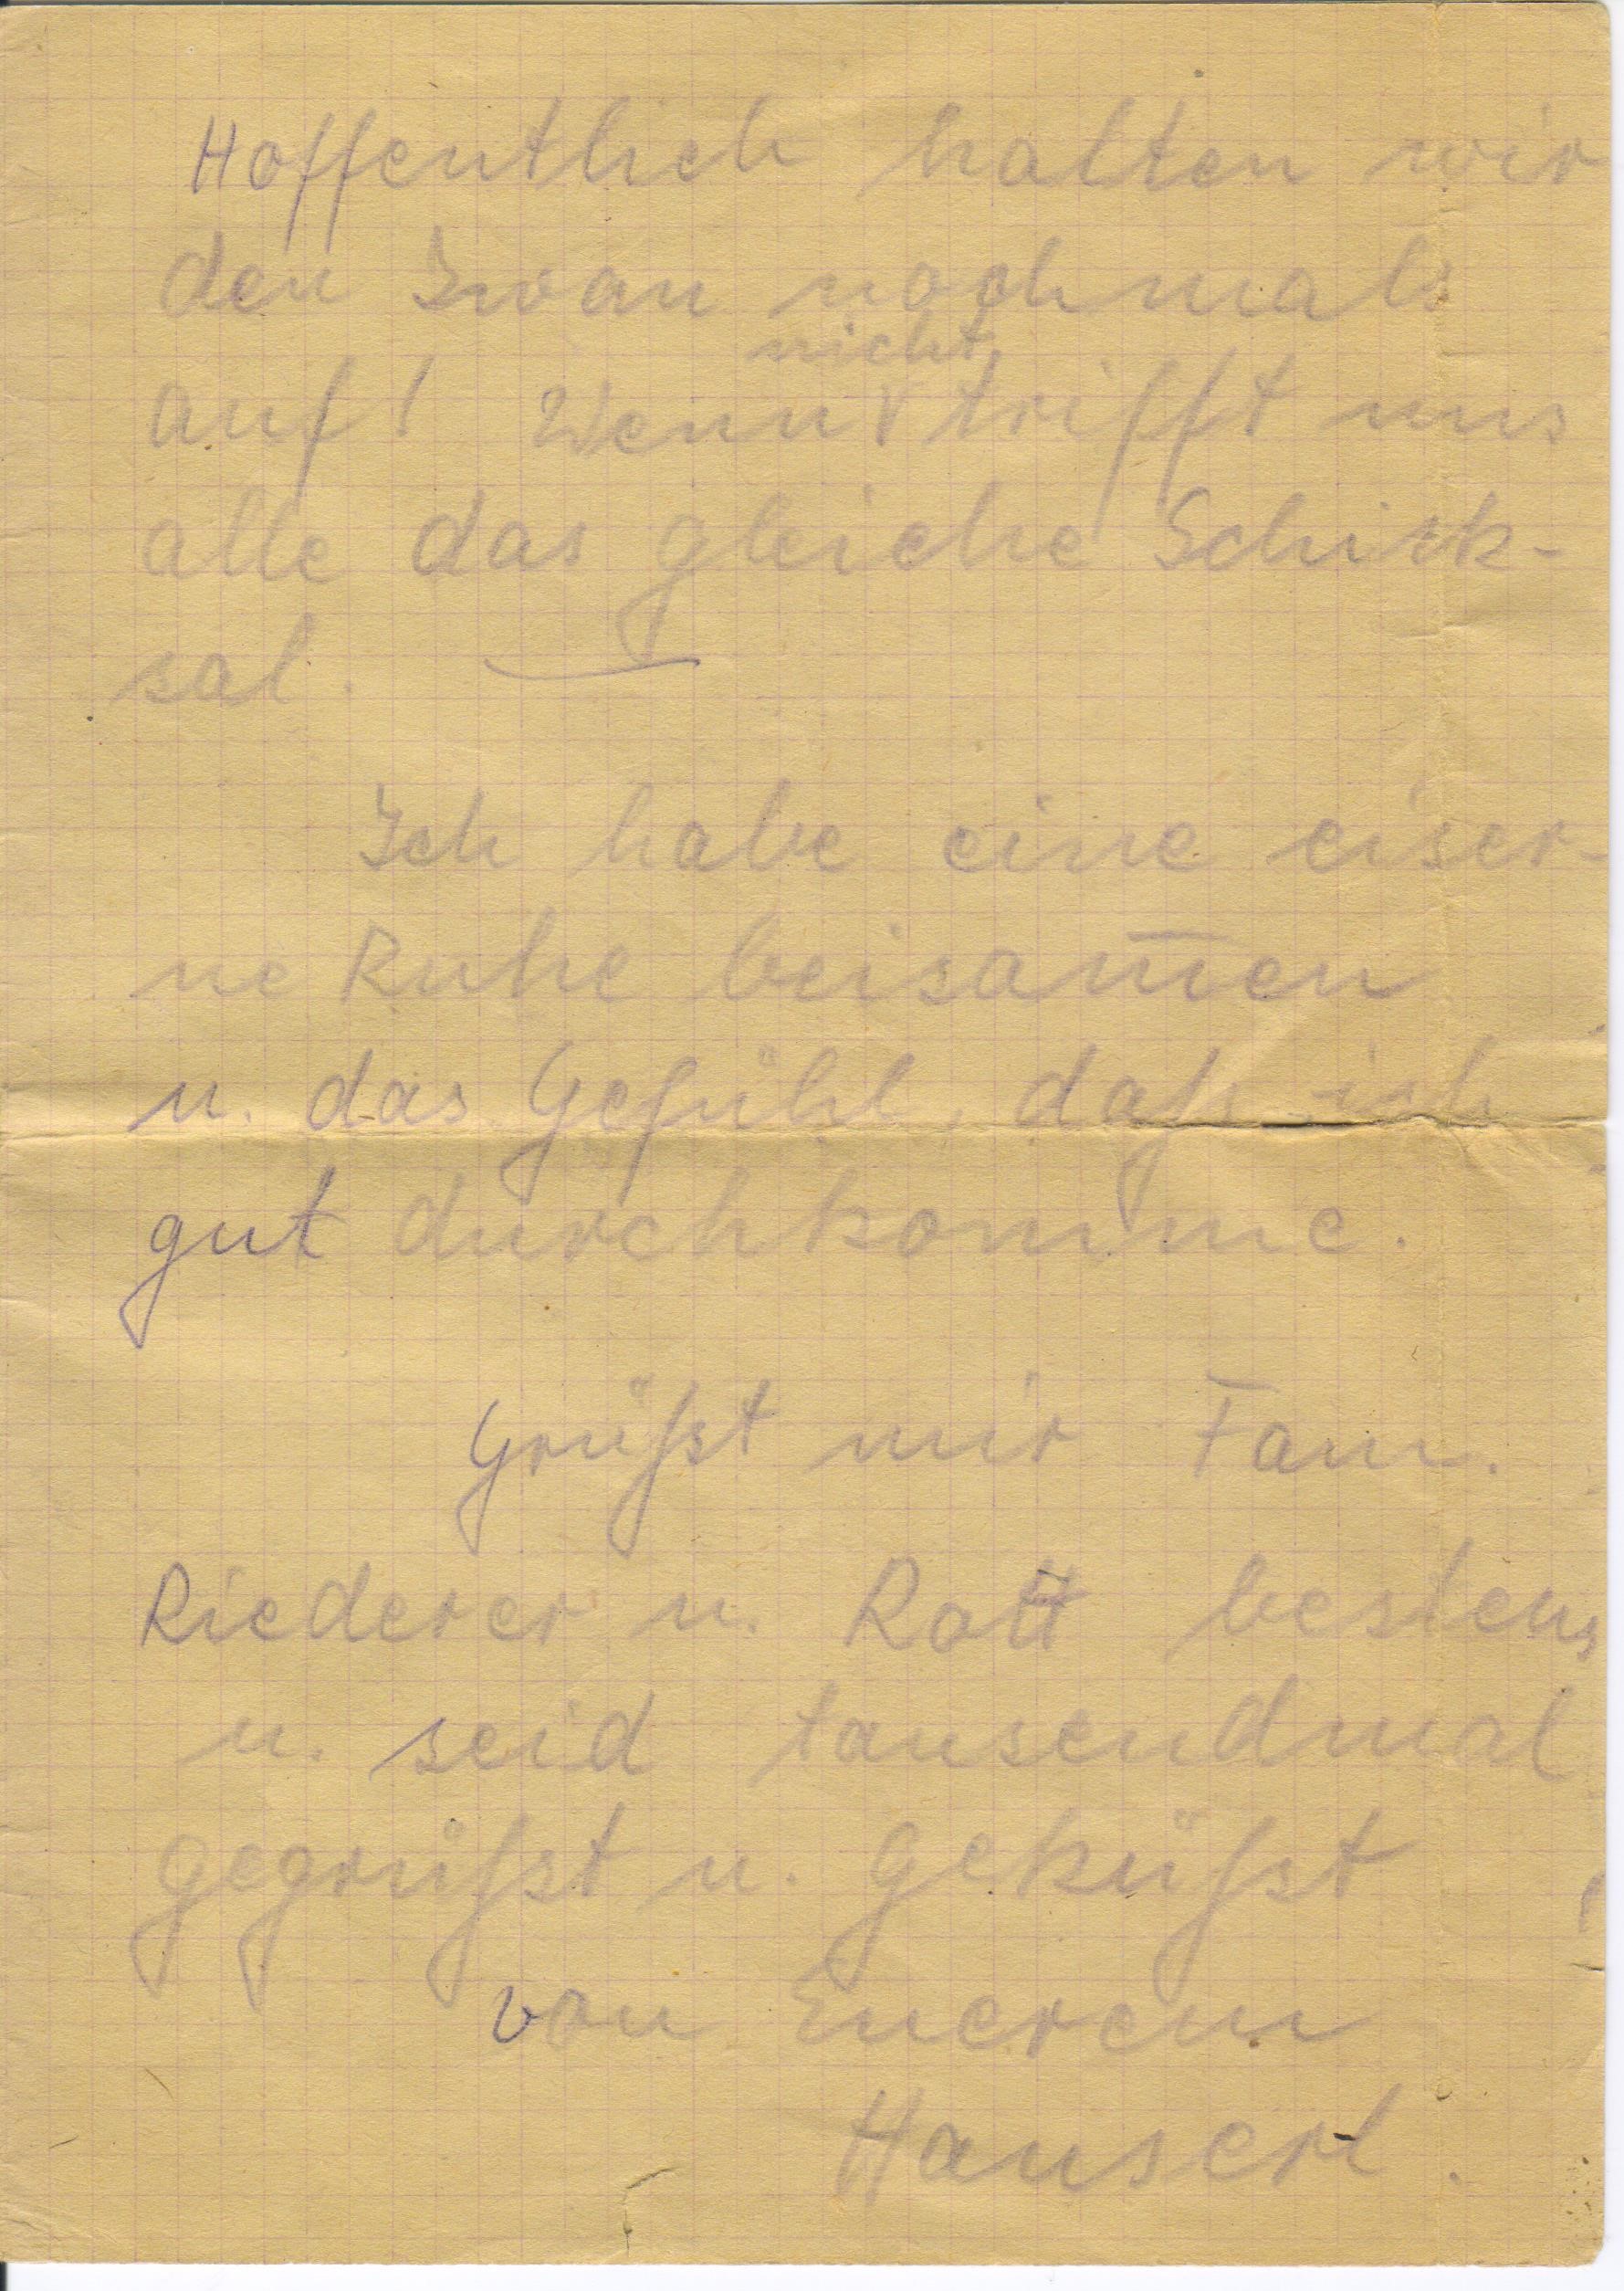 Hoffentlich halten wir
den Iwan nochmals
nicht
auf! Wenn trifft uns
alle das gleiche Schick-
sal.
Ich habe eine eiser-
ne Ruhe beisam̅en
u. das Gefühl, daß ich
gut durchkomme.
Grüßt mir Fam.
Riederer u. Rott bestens
u. seid tausendmal
gegrüßt u. geküßt
von Euerem
Hanserl.